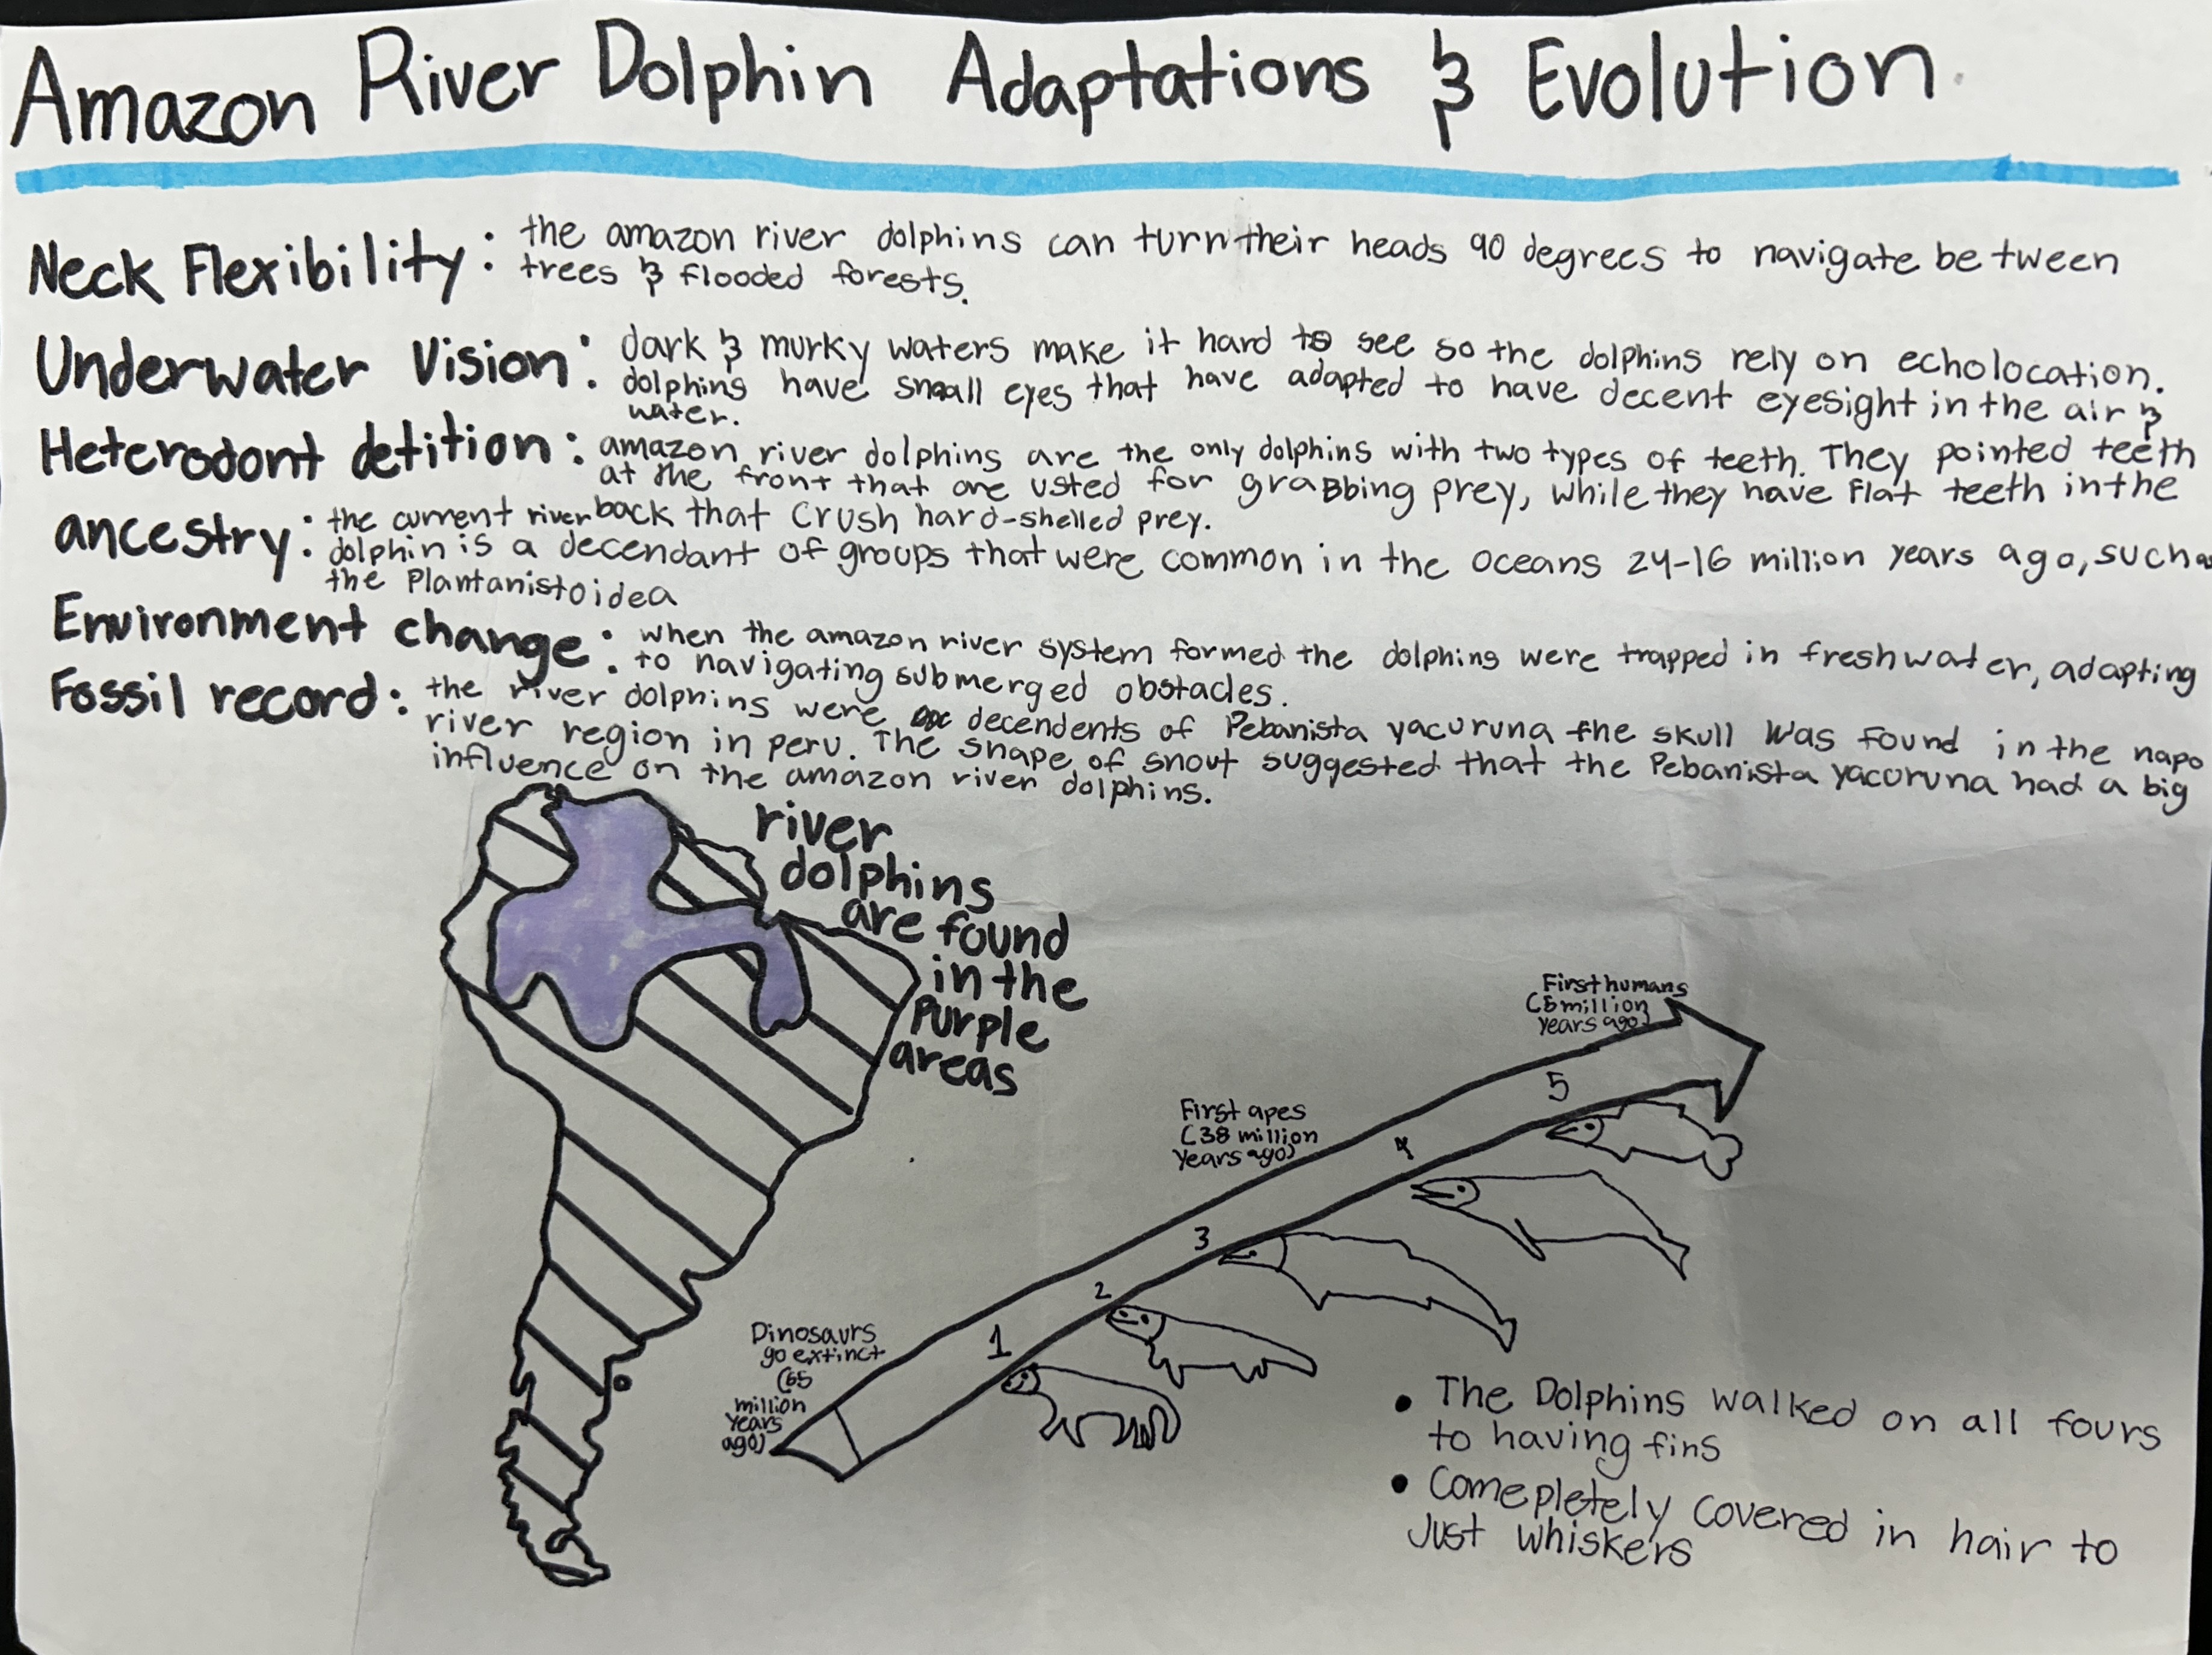 Amazon River Dolphin Adaptations & Evolution
Neck Flexibility: the amazon river dolphins can turn their heads 90 degrees to navigate between
trees & flooded forests.
Underwater Vision: dark & murky waters make it hard to see so the dolphins rely on echolocation.
dolphins have small eyes that have adapted to have decent eyesight in the air &
water.
Heterodont detition: amazon river dolphins are the only dolphins with two types of teeth. They pointed teeth
at the front that are usted for graBbing prey, while they have flat teeth in the
back that crush hard-shelled prey.
ancestry: the current river
dolphin is a decendant of groups that were common in the oceans 24-16 million years ago, such as
the Plantanistoidea
Environment change: when the amazon river system formed the dolphins were trapped in freshwater, adapting
to navigating submerged obstacles.
Fossil record: the river dolphins were decendents of Pebanista yacuruna the skull was found in the napo
river region in peru. The shape of snout suggested that the Pebanista yacuruna had a big
influence on the amazon river dolphins.
river
dolphins
are found
in the
Purple
areas
First humans
(5 million
years ago)
5
First apes
(38 million
years ago)
4
3
2
1
Dinosaurs
go extinct
(65
million
years
ago)
• The Dolphins walked on all fours
to having fins
• Comepletely covered in hair to
Just whiskers